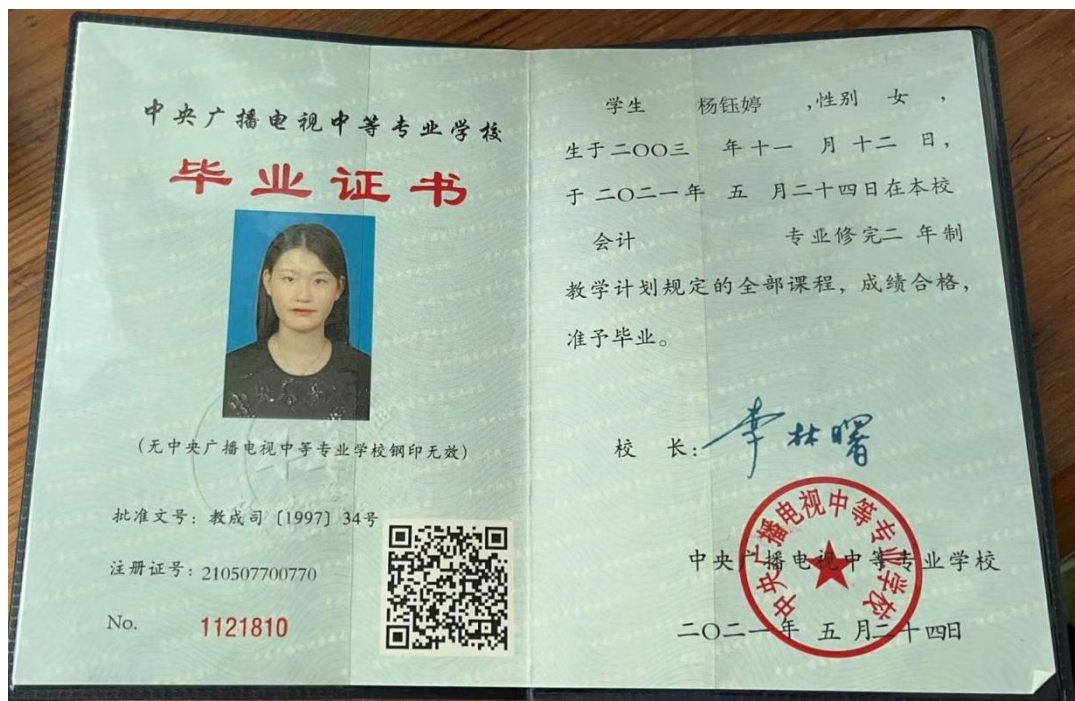 中央广播电视中等专业学校
毕业证书
(无中央广播电视中等专业学校钢印无效)
批准文号：教成司〔1997〕34号
注册证号：210507700770
No. 1121810
学生 杨钰婷 ,性别 女 ，
生于二〇〇三 年十一 月十二 日，
于二〇二一年 五 月二十四日在本校
会计 专业修完二 年制
教学计划规定的全部课程，成绩合格，
准予毕业。
校 长：李林曙
中央广播电视中等专业学校
中央广播电视中等专业学校
二〇二一年 五 月二十四日